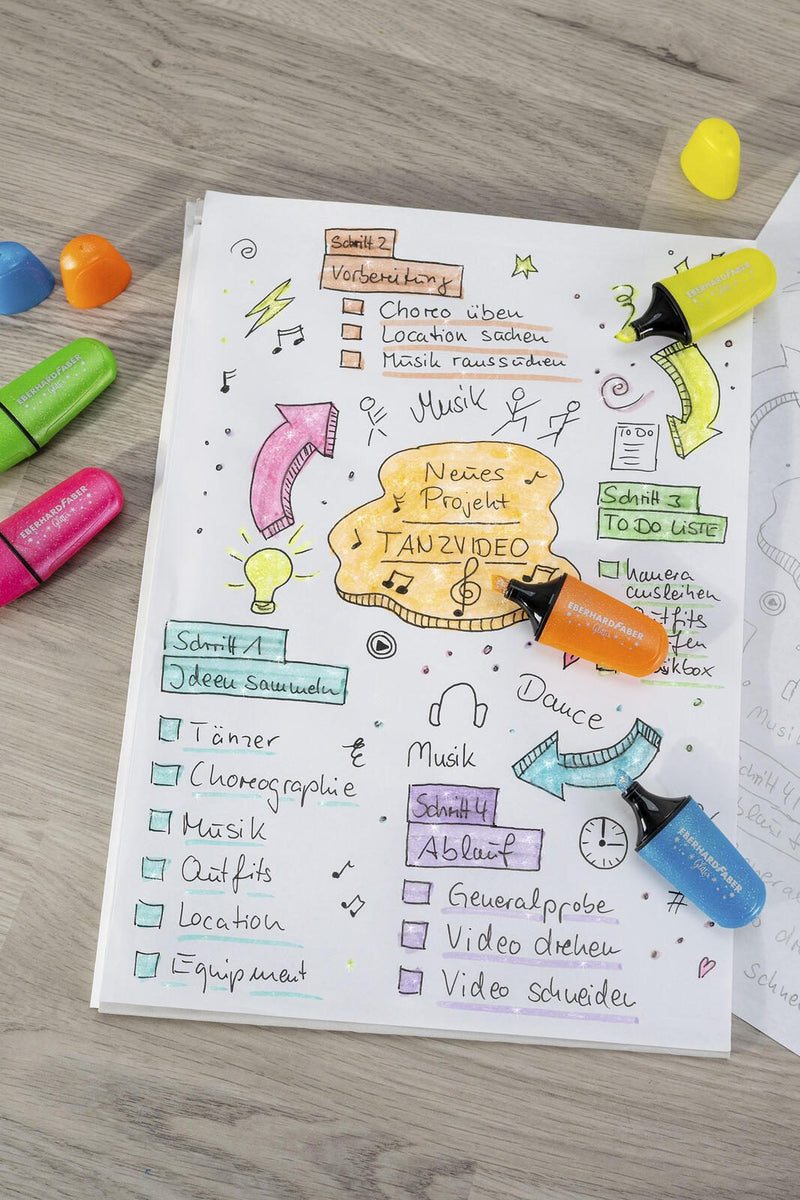 Schritt 2
Vorbereitung
Choreo üben
Location suchen
Musik raussuchen
Musik
Neues
Projekt
TANZVIDEO
TO DO
Schritt 3
TO DO LISTE
Kamera
ausleihen
Outfits
Schritt 1
Ideen sammeln
Tänzer
Choreographie
Musik
Outfits
Location
Equipment
Dance
Musik
Schritt 4
Ablauf
Generalprobe
Video drehen
Video schneiden
#
EBERHARD FABER
Glitter
EBERHARD FABER
Glitter
EBERHARD FABER
Glitter
EBERHARD FABER
Glitter
EBERHARD FABER
Glitter